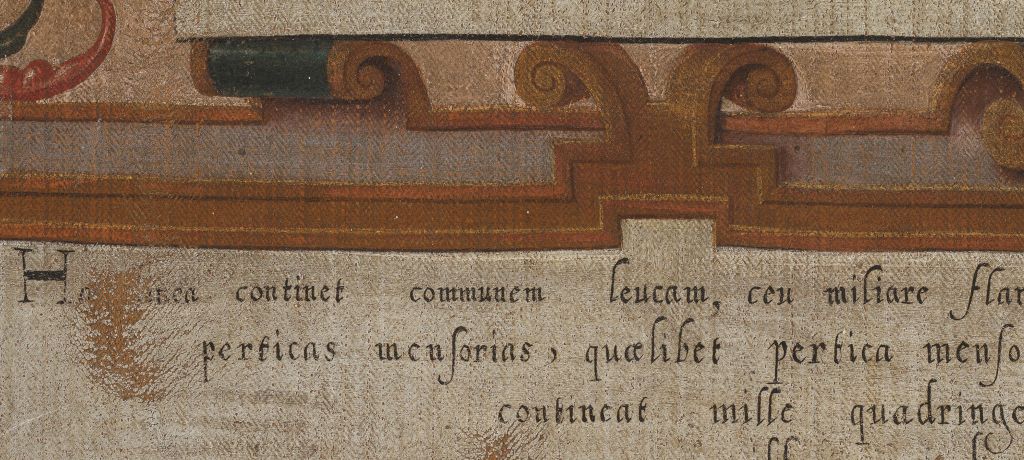 continet communem leucam, ceu miliare flan
perticas menſorias, quælibet pertica menſo
contineat mille quadringe